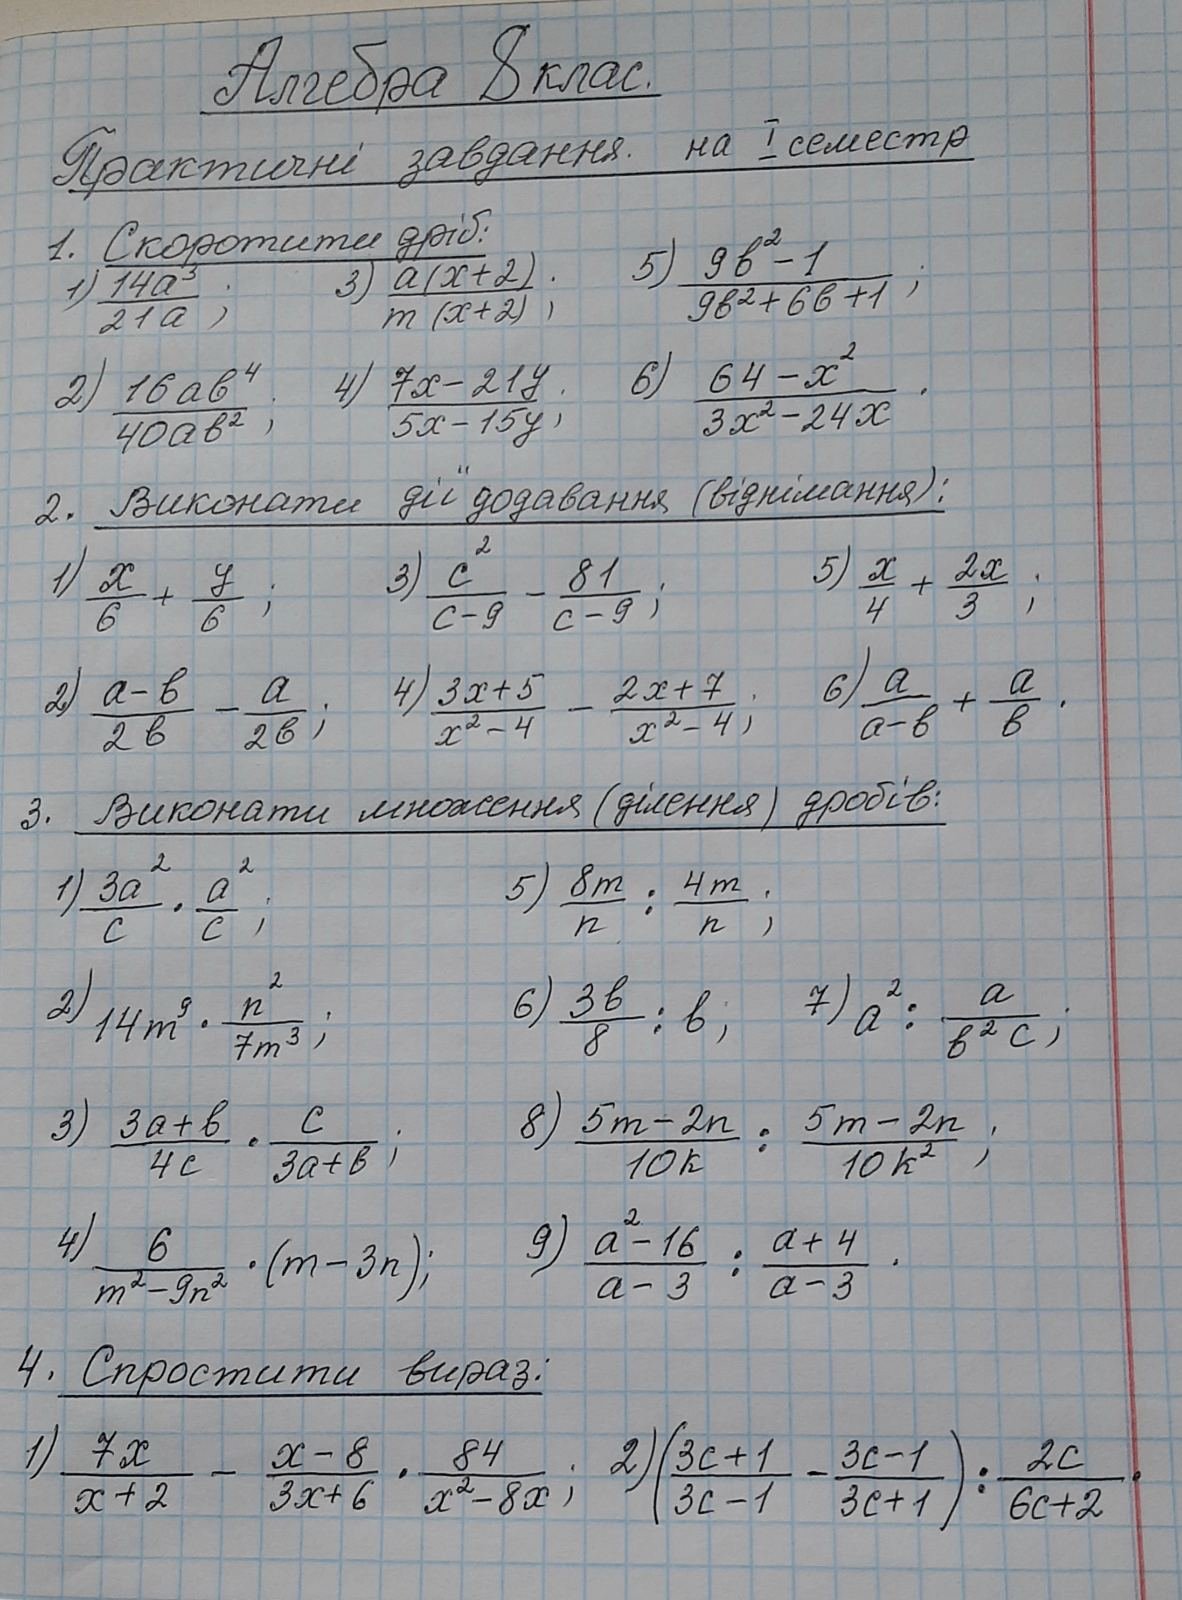 Алгебра 8 клас.
Практичні завдання. на I семестр
1. Скоротити дріб:
1) 14a³/21a; 3) a(x+2)/m(x+2); 5) (9b²-1)/(9b²+6b+1);
2) 16ab⁴/40ab²; 4) (7x-21y)/(5x-15y); 6) (64-x²)/(3x²-24x).
2. Виконати дії додавання (віднімання):
1) x/6 + y/6; 3) c²/(c-9) - 81/(c-9); 5) x/4 + 2x/3;
2) (a-b)/2b - a/2b; 4) (3x+5)/(x²-4) - (2x+7)/(x²-4); 6) a/(a-b) + a/b.
3. Виконати множення (ділення) дробів:
1) 3a²/c · a²/c; 5) 8m/n : 4m/n;
2) 14m⁹ · n²/7m³; 6) 3b/8 : b; 7) a² : a/b²c;
3) (3a+b)/4c · c/(3a+b); 8) (5m-2n)/10k : (5m-2n)/10k²;
4) 6/(m²-9n²) · (m-3n); 9) (a²-16)/(a-3) : (a+4)/(a-3).
4. Спростити вираз:
1) 7x/(x+2) - (x-8)/(3x+6) · 84/(x²-8x); 2) ((3c+1)/(3c-1) - (3c-1)/(3c+1)) : 2c/(6c+2).